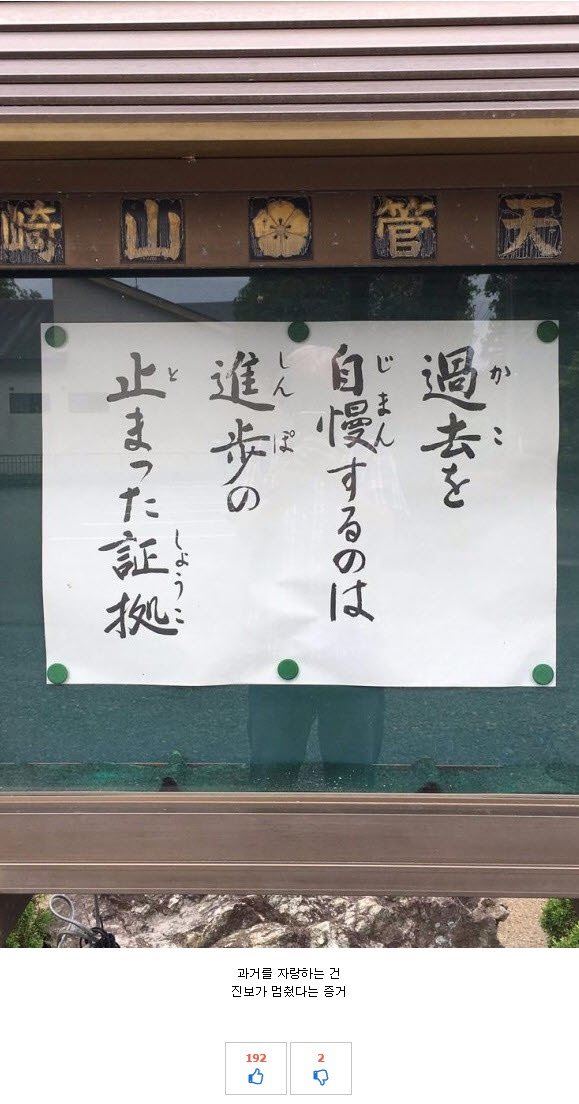 天管山崎
かこ
過去を
じまん
自慢するのは
しんぽ
進歩の
と しょうこ
止まった証拠
과거를 자랑하는 건
진보가 멈췄다는 증거
192
2